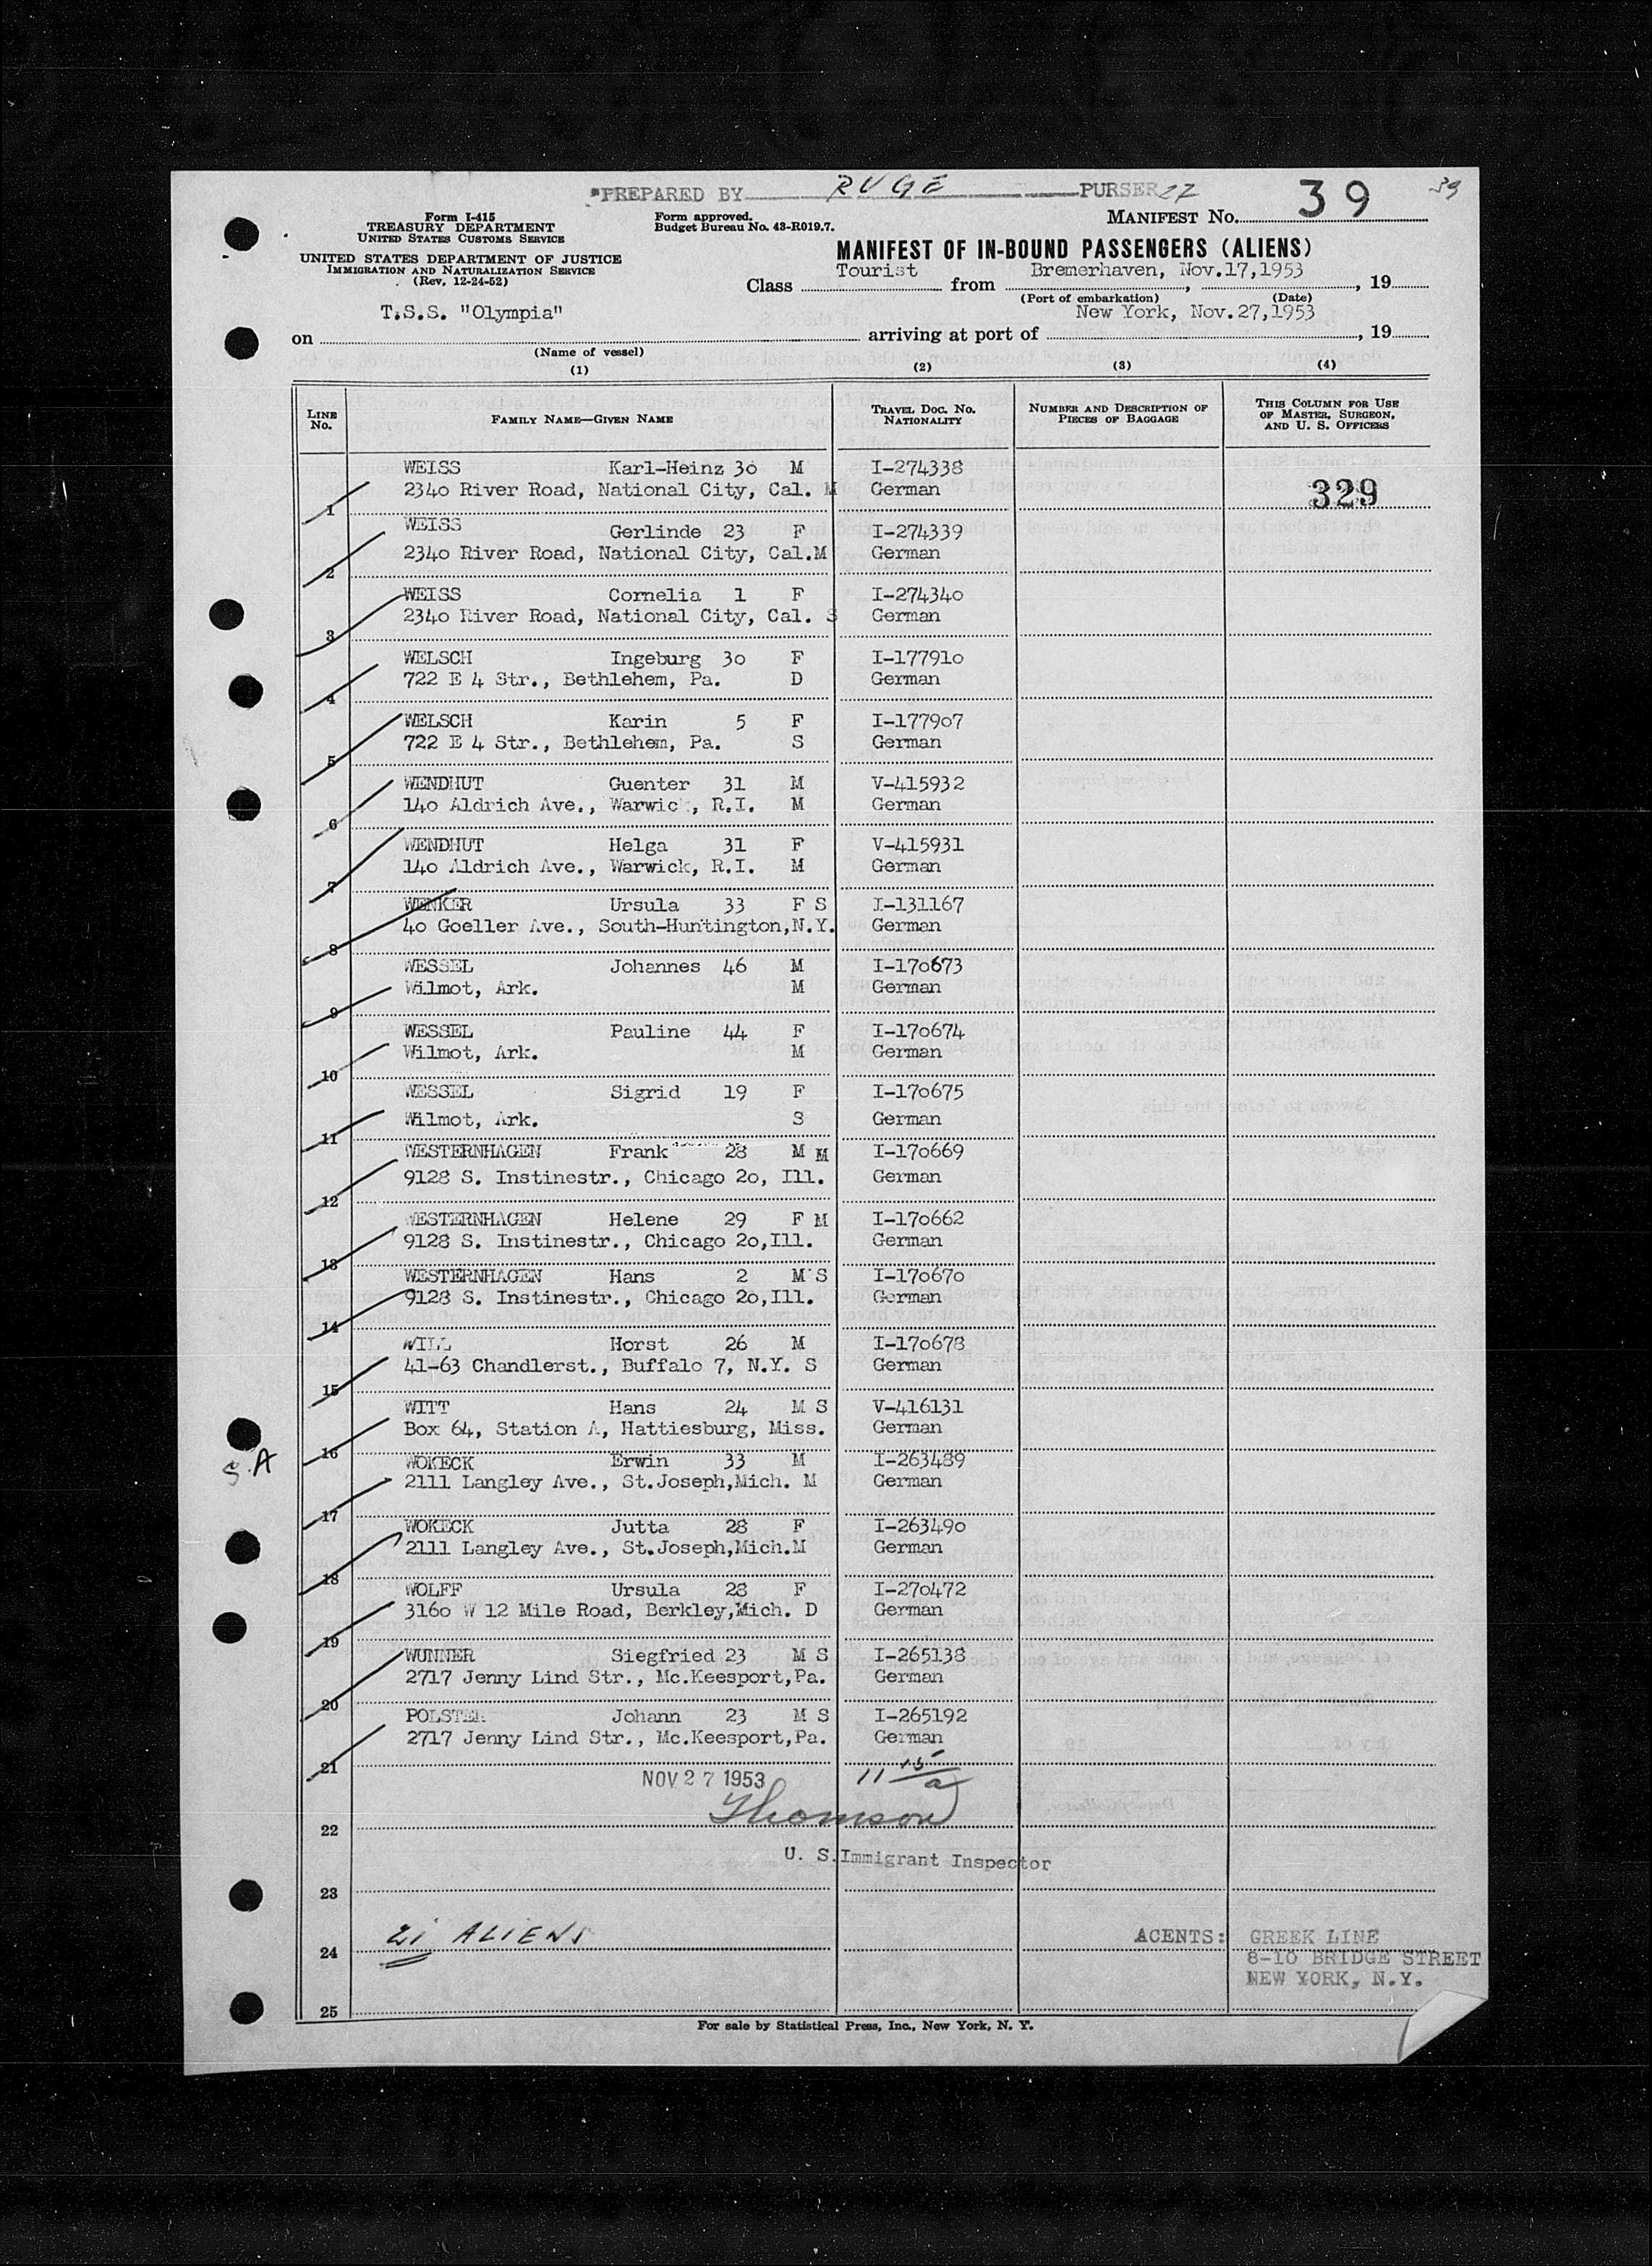 PREPARED BY RUGE PURSER 27
39
Form I-415
TREASURY DEPARTMENT
UNITED STATES CUSTOMS SERVICE
UNITED STATES DEPARTMENT OF JUSTICE
IMMIGRATION AND NATURALIZATION SERVICE
(Rev. 12-24-52)
Form approved.
Budget Bureau No. 43-R019.7.
MANIFEST No. 39
MANIFEST OF IN-BOUND PASSENGERS (ALIENS)
Class Tourist from Bremerhaven, Nov.17,1953, 19
(Port of embarkation) (Date)
on T.S.S. "Olympia" arriving at port of New York, Nov.27,1953, 19
(Name of vessel)
(1) (2) (3) (4)
LINE No. FAMILY NAME—GIVEN NAME TRAVEL DOC. No. NATIONALITY NUMBER AND DESCRIPTION OF PIECES OF BAGGAGE THIS COLUMN FOR USE OF MASTER, SURGEON, AND U. S. OFFICERS
WEISS Karl-Heinz 30 M I-274338
1 2340 River Road, National City, Cal. M German 329
WEISS Gerlinde 23 F I-274339
2 2340 River Road, National City, Cal.M German
WEISS Cornelia 1 F I-274340
3 2340 River Road, National City, Cal. S German
WELSCH Ingeburg 30 F I-177910
4 722 E 4 Str., Bethlehem, Pa. D German
WELSCH Karin 5 F I-177907
5 722 E 4 Str., Bethlehem, Pa. S German
WENDHUT Guenter 31 M V-415932
6 140 Aldrich Ave., Warwic , R.I. M German
WENDHUT Helga 31 F V-415931
7 140 Aldrich Ave., Warwick, R.I. M German
WENKER Ursula 33 F S I-131167
8 40 Goeller Ave., South-Huntington,N.Y. German
WESSEL Johannes 46 M I-170673
9 Wilmot, Ark. M German
WESSEL Pauline 44 F I-170674
10 Wilmot, Ark. M German
WESSEL Sigrid 19 F I-170675
11 Wilmot, Ark. S German
WESTERNHAGEN Frank 28 M M I-170669
12 9128 S. Instinestr., Chicago 20, Ill. German
WESTERNHAGEN Helene 29 F M I-170662
13 9128 S. Instinestr., Chicago 20,Ill. German
WESTERNHAGEN Hans 2 M S I-170670
14 9128 S. Instinestr., Chicago 20,Ill. German
WILL Horst 26 M I-170678
15 41-63 Chandlerst., Buffalo 7, N.Y. S German
WITT Hans 24 M S V-416131
16 Box 64, Station A, Hattiesburg, Miss. German
S.A
WOKECK Erwin 33 M I-263489
17 2111 Langley Ave., St.Joseph,Mich. M German
WOKECK Jutta 28 F I-263490
18 2111 Langley Ave., St.Joseph,Mich.M German
WOLFF Ursula 28 F I-270472
19 3160 W 12 Mile Road, Berkley,Mich. D German
WUNNER Siegfried 23 M S I-265138
20 2717 Jenny Lind Str., Mc.Keesport,Pa. German
POLSTER Johann 23 M S I-265192
21 2717 Jenny Lind Str., Mc.Keesport,Pa. German
NOV 27 1953 11 15/a
22 Thomson
U. S. Immigrant Inspector
23
24 21 ALIENS
ACENTS: GREEK LINE
8-10 BRIDGE STREET
NEW YORK, N.Y.
25
For sale by Statistical Press, Inc., New York, N. Y.